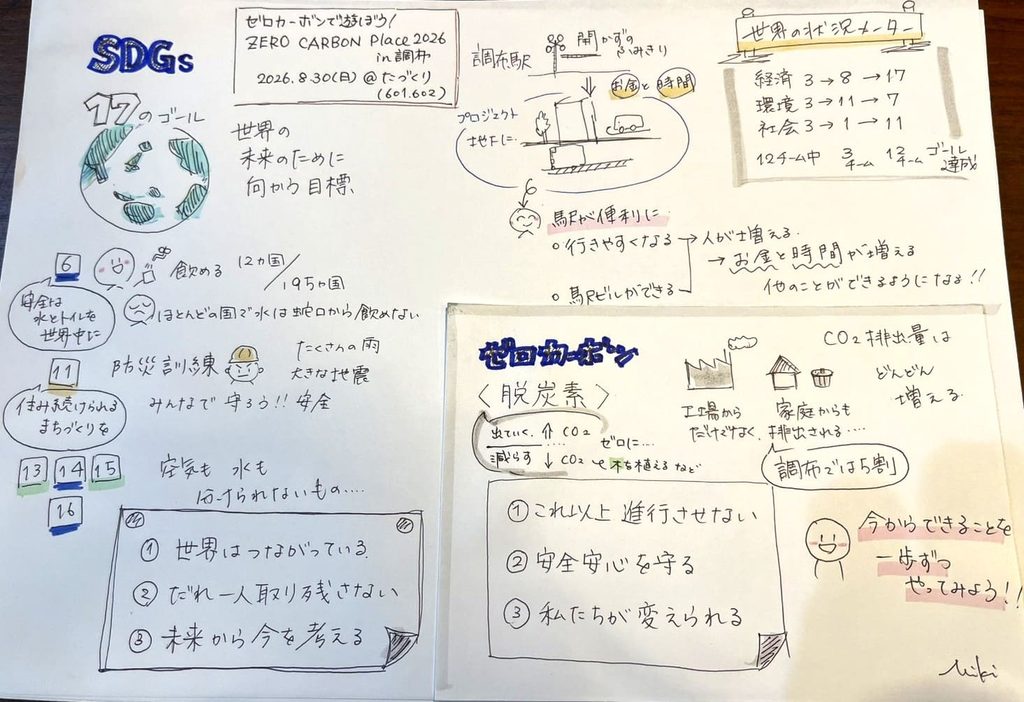 SDGs
17のゴール
世界の
未来のために
向かう目標
ゼロカーボンで遊ぼう!
ZERO CARBON Place 2026
in 調布
2026.8.30(日) @ たづくり
(601.602)
調布駅
開かずの
ふみきり
お金と時間
プロジェクト
地下に
駅が便利に
行きやすくなる → 人が増える
→ お金と時間が増える
駅ビルができる
他のことができるようになる!!
世界の状況メーター
経済 3 → 8 → 17
環境 3 → 11 → 7
社会 3 → 1 → 11
12チーム中 3チーム 12チーム ゴール達成
6
飲める 12カ国/195カ国
安全な
水とトイレを
世界中に
ほとんどの国で水は蛇口から飲めない
11
防災訓練
たくさんの雨
大きな地震
住み続けられる
まちづくりを
みんなで守ろう!! 安全
13 14 15
16
空気も 水も
分けられないもの....
① 世界はつながっている
② だれ一人取り残さない
③ 未来から今を考える
ゼロカーボン
〈脱炭素〉
出ていく ↑ CO2
減らす ↓ CO2
ゼロに...
木を植えるなど
工場から
だけでなく、
家庭からも
排出される....
CO2排出量は
どんどん
増える
調布では5割
① これ以上進行させない
② 安全安心を守る
③ 私たちが変えられる
今からできることを
一歩ずつ
やってみよう!!
Miki